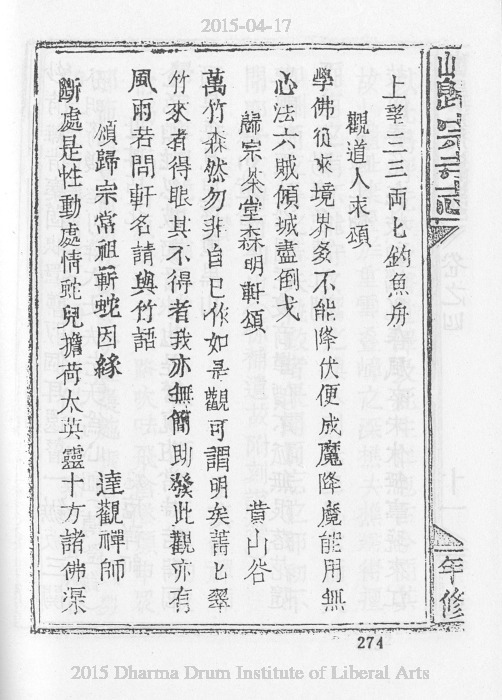 2015-04-17
山歸宗寺志
年修
上望三三両匕釣魚舟
觀道人求頌
學佛從來境界多不能降伏便成魔降魔能用無
心法六賊傾城盡倒戈
歸宗茶堂森明軒頌　黃山谷
萬竹森然勿非自已作如是觀可謂明矣菁匕翠
竹來者得眼其不得者我亦無簡助發此觀亦有
風雨若問軒名請與竹語
頌歸宗常祖斬蛇因緣　達觀禪師
斷處是性動處情蛇兒擔荷太英靈十方諸佛深
274
2015 Dharma Drum Institute of Liberal Arts